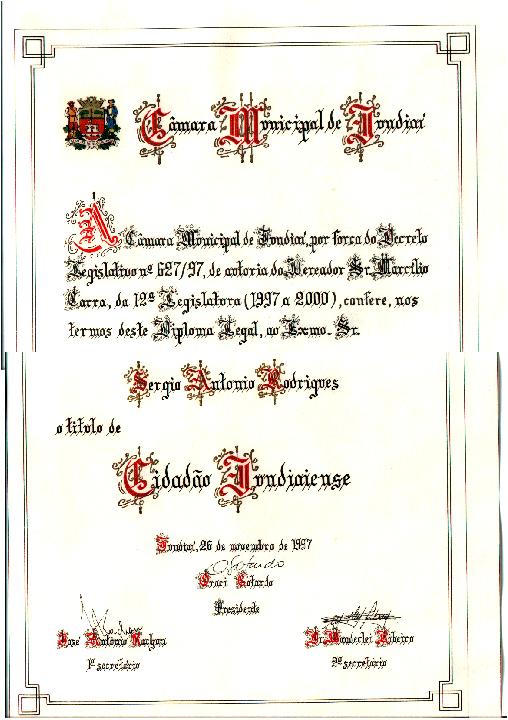 Câmara Municipal de Jundiaí
A Câmara Municipal de Jundiaí, por força do Decreto
Legislativo nº 627/97, de autoria do Vereador Sr. Marcílio
Carra, da 12ª Legislatura (1997 a 2000), confere, nos
termos deste Diploma Legal, ao Exmo. Sr.
Sergio Antonio Rodrigues
o título de
Cidadão Jundiaiense
Jundiaí, 26 de novembro de 1997
Oraci Gotardo
Presidente
José Antônio Kachan
1º secretário
Dr. Wanderlei Ribeiro
2º secretário